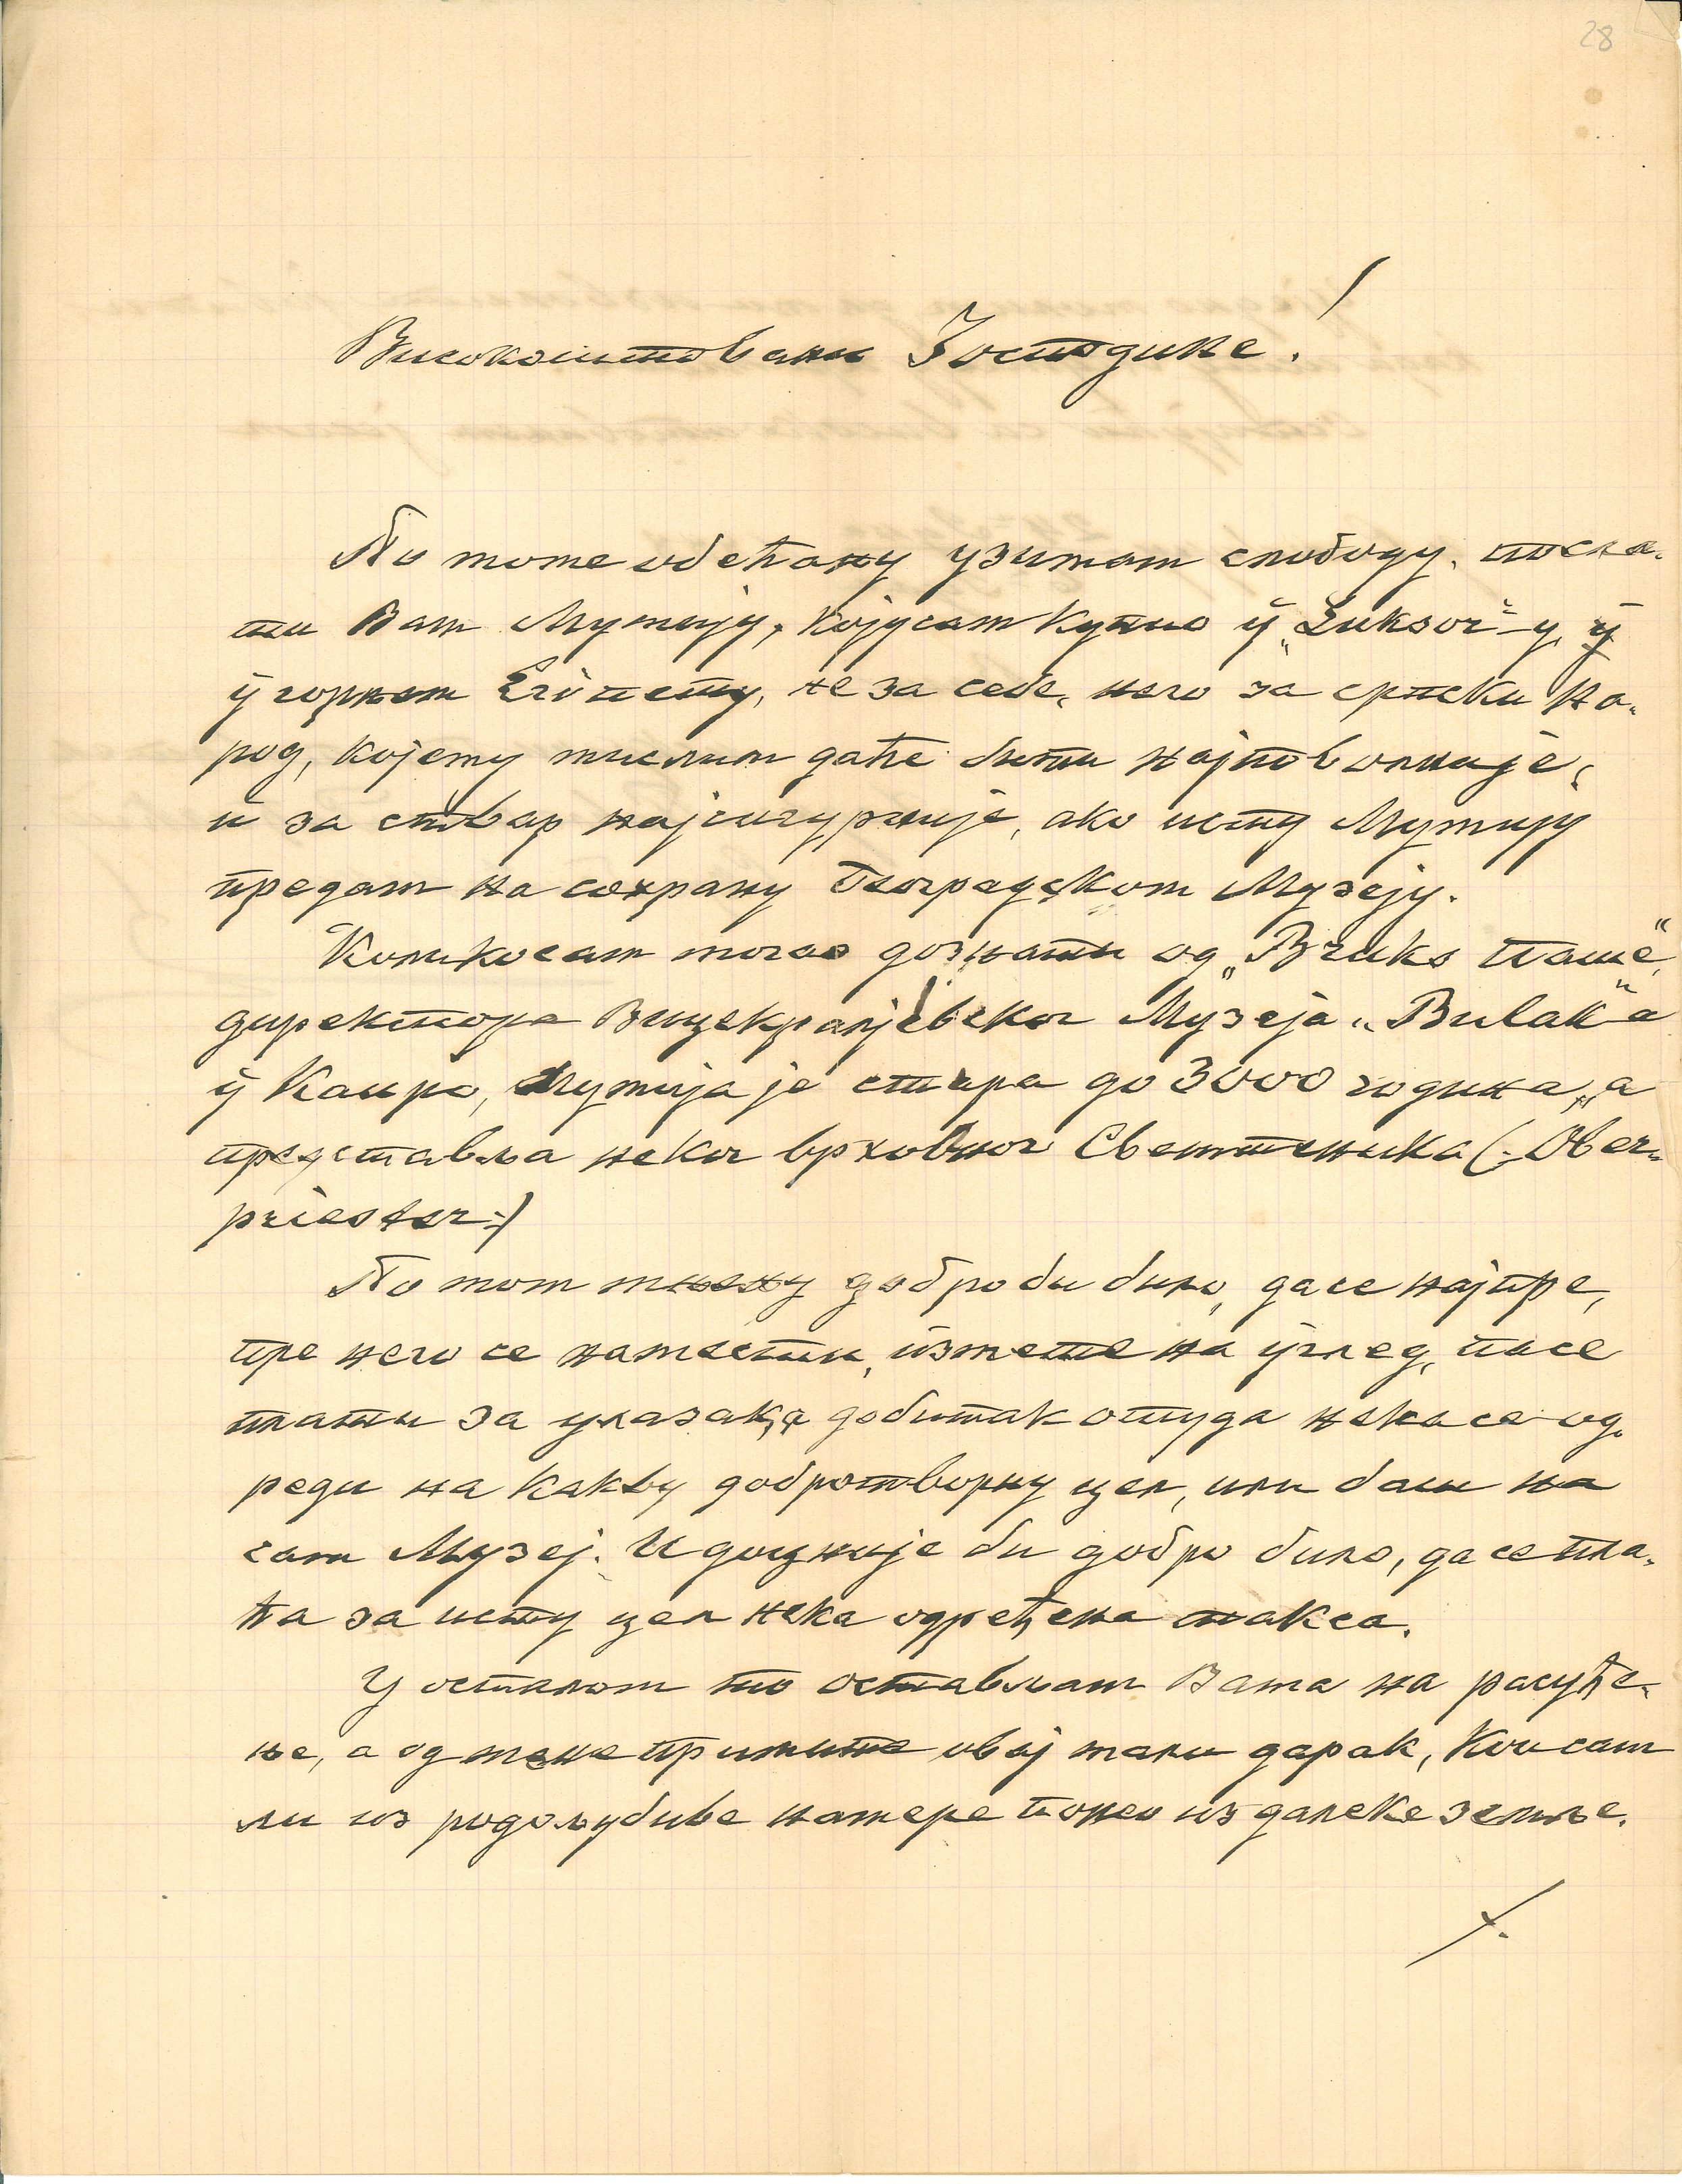 28
Високоштовани Господине!
По моме обећању узимам слободу, посла-
ти Вам Мумију, којусам купио у „Luksor“-у, у
у горњем Египту, не за себе, него за српски на-
род, којему мислим даће бити најповолније,
и за ствар најсигурније, ако исту Мумију
предам на сохрану београдском Музеју.
Коликосам могао дознати од „Bruks паше“
директора Вицекраљевског Музеја „Bulak“а
у Каиро, Мумија је стара до 3000 година, а
представља неког врховног Свештеника (:Ober-
priester:)
По мом мнењу добро би било, да се најпре,
пре него се намести, изметне на углед, па се
плати за улазак, а добитак отуда нека се од-
реди на какву добротворну цел, или баш на
сам Музеј. И доцније би добро било, да се пла-
ћа за исту цел нека одређена такса.
У осталом то остављам Вама на расуђе-
ње, а од мене примите овај мали дарак, кои сам
ли из родољубиве намере понео из далеке земље.